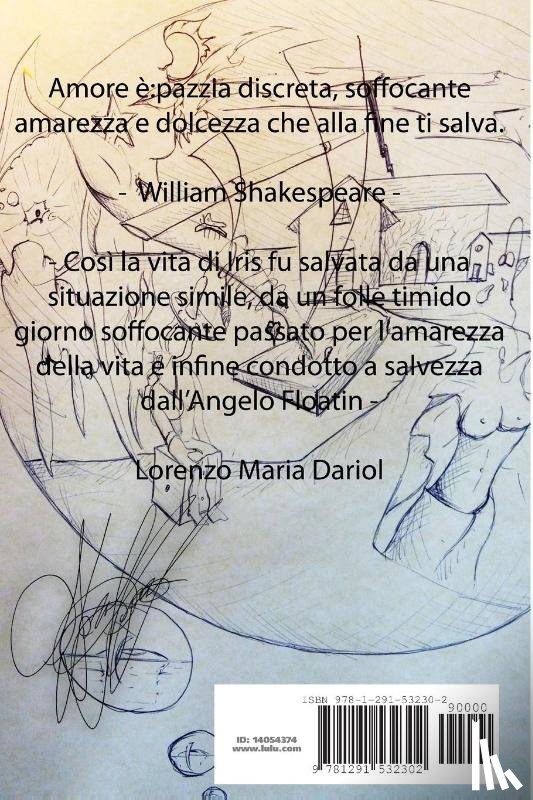 Amore è:pazzia discreta, soffocante
amarezza e dolcezza che alla fine ti salva.
- William Shakespeare -
- Così la vita di Iris fu salvata da una
situazione simile, da un folle timido
giorno soffocante passato per l'amarezza
della vita e infine condotto a salvezza
dall'Angelo Floatin -
Lorenzo Maria Dariol
ISBN 978-1-291-53230-2
90000
ID: 14054374
www.lulu.com
9 781291 532302